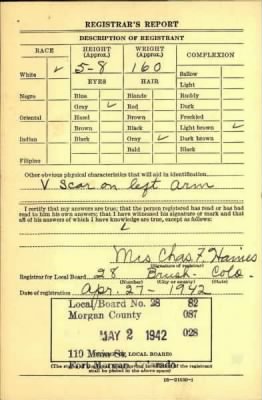 REGISTRAR'S REPORT
DESCRIPTION OF REGISTRANT
RACE HEIGHT (Approx.) WEIGHT (Approx.) COMPLEXION
White ✓ 5-8 160 Sallow
EYES HAIR Light
Negro Blue Blonde Ruddy
Gray ✓ Red Dark
Oriental Hazel Brown Freckled
Brown Black Light brown ✓
Indian Black Gray ✓ Dark brown
Bald Black
Filipino
Other obvious physical characteristics that will aid in identification
V Scar on left arm
I certify that my answers are true; that the person registered has read or has had
read to him his own answers; that I have witnessed his signature or mark and that
all of his answers of which I have knowledge are true, except as follows:
Mrs Chas. F. Haines
(Signature of registrar)
Registrar for Local Board 28 Brush- Colo
(Number) (City or county) (State)
Date of registration Apr. 27- 1942
Local Board No. 28 82
Morgan County 087
MAY 2 1942 028
110 Main St.
Fort Morgan, Colorado
LOCAL BOARD)